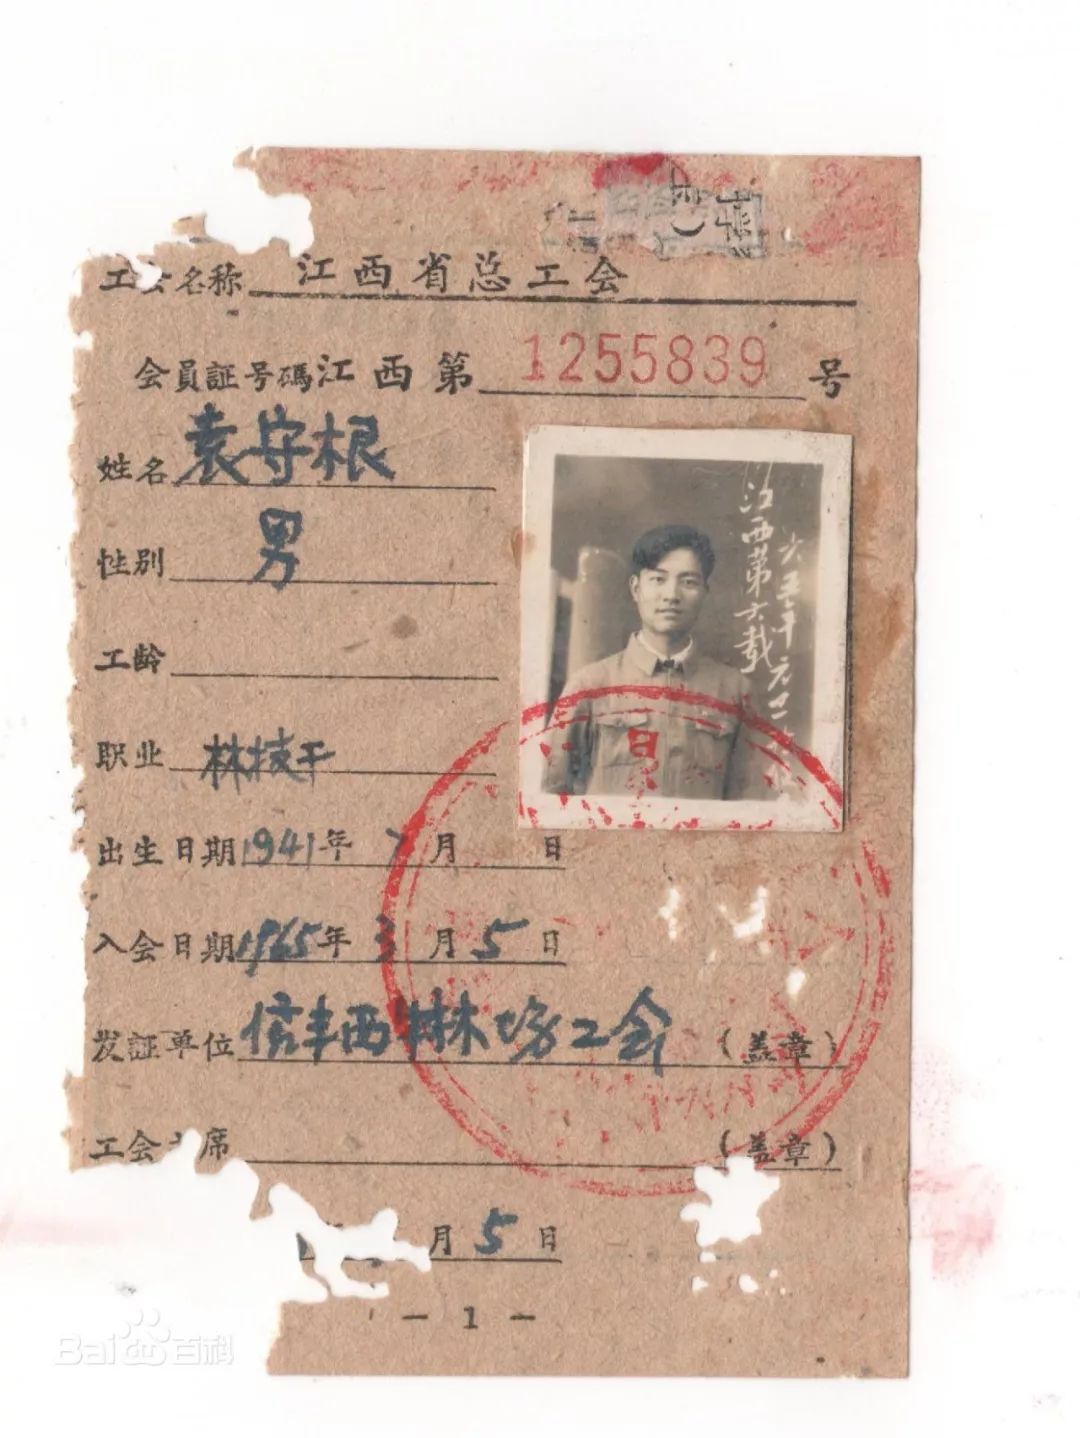 工会名称 江西省总工会
会員証号碼江西第 1255839 号
姓名 袁守根
性别 男
工龄
职业 林技干
江西第六载
六五年元廿一
出生日期 1941年 7月 日
入会日期 1965年 3月 5日
发証单位 信丰西牛林场工会 (盖章)
工会 席 (盖章)
月 5 日
- 1 -
Bai 百科